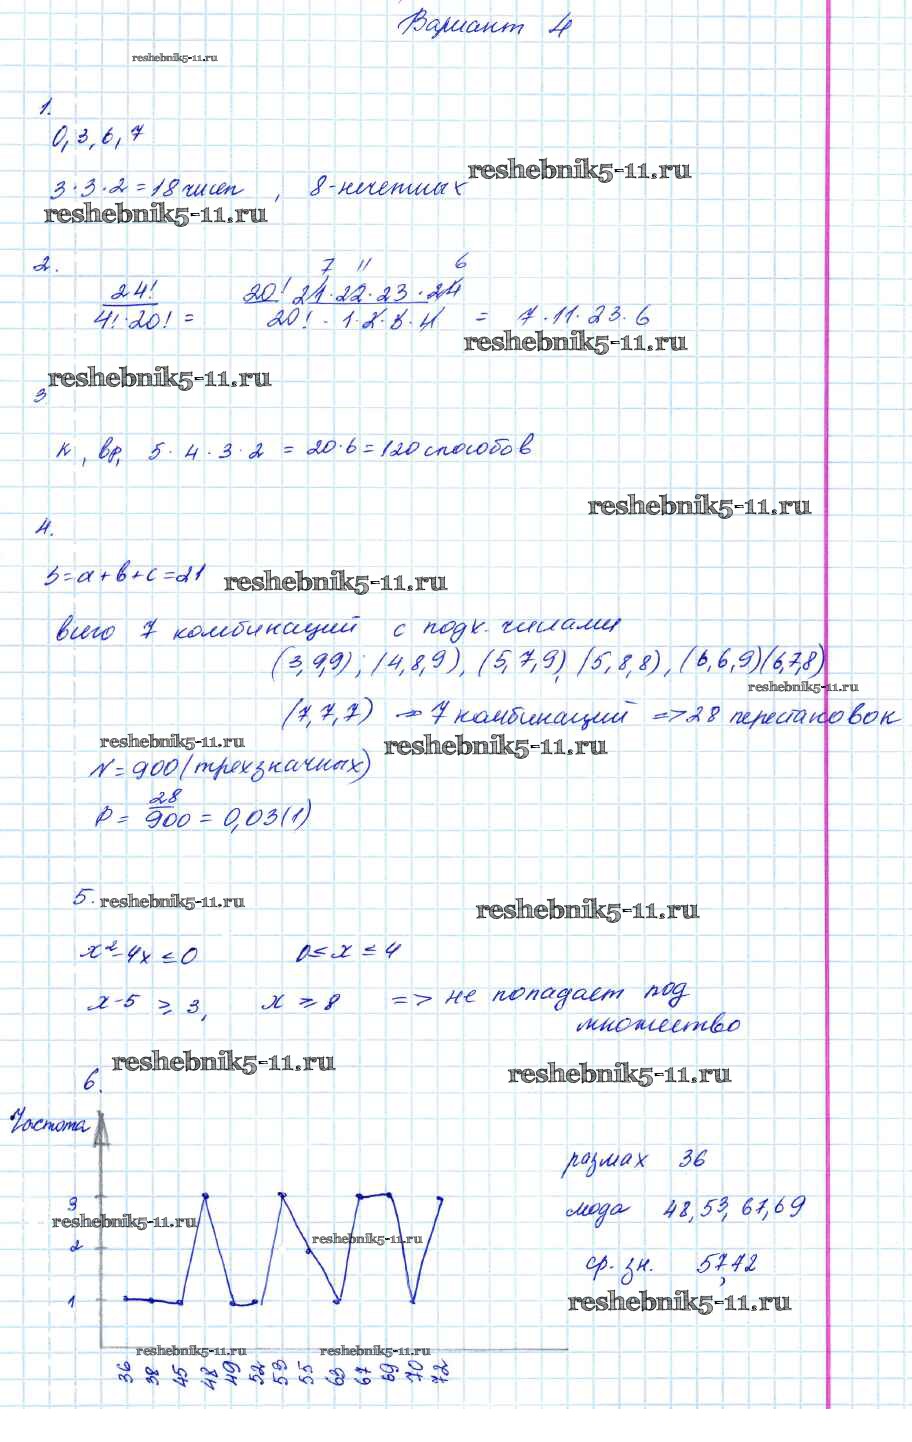 Вариант 4
reshebnik5-11.ru
1.
0, 3, 6, 7
reshebnik5-11.ru
3·3·2=18 чисел, 8-нечетных
reshebnik5-11.ru
2.
7 11 6
24! / 4!·20! = 20! 21·22·23·24 / 20!·1·2·3·4 = 7·11·23·6
reshebnik5-11.ru
reshebnik5-11.ru
3
к, вр, 5·4·3·2 = 20·6=120 способов
reshebnik5-11.ru
4.
S=a+b+c=21
reshebnik5-11.ru
всего 7 комбинаций с подх. числами
(3,9,9); (4,8,9), (5,7,9), (5,8,8), (6,6,9)(6,7,8)
reshebnik5-11.ru
(7,7,7) → 7 комбинаций => 28 перестановок
reshebnik5-11.ru
reshebnik5-11.ru
N=900 (трехзначных)
P= 28/900 = 0,03(1)
5.
reshebnik5-11.ru
reshebnik5-11.ru
x²-4x ≤0 0≤x≤4
x-5 ≥ 3, x ≥ 8 => не попадает под
множество
reshebnik5-11.ru
reshebnik5-11.ru
6.
Частота
размах 36
3
мода 48,53,67,69
reshebnik5-11.ru
reshebnik5-11.ru
2
ср. зн. 57,42
1
reshebnik5-11.ru
reshebnik5-11.ru
reshebnik5-11.ru
36 38 45 48 49 52 53 55 63 67 69 70 72